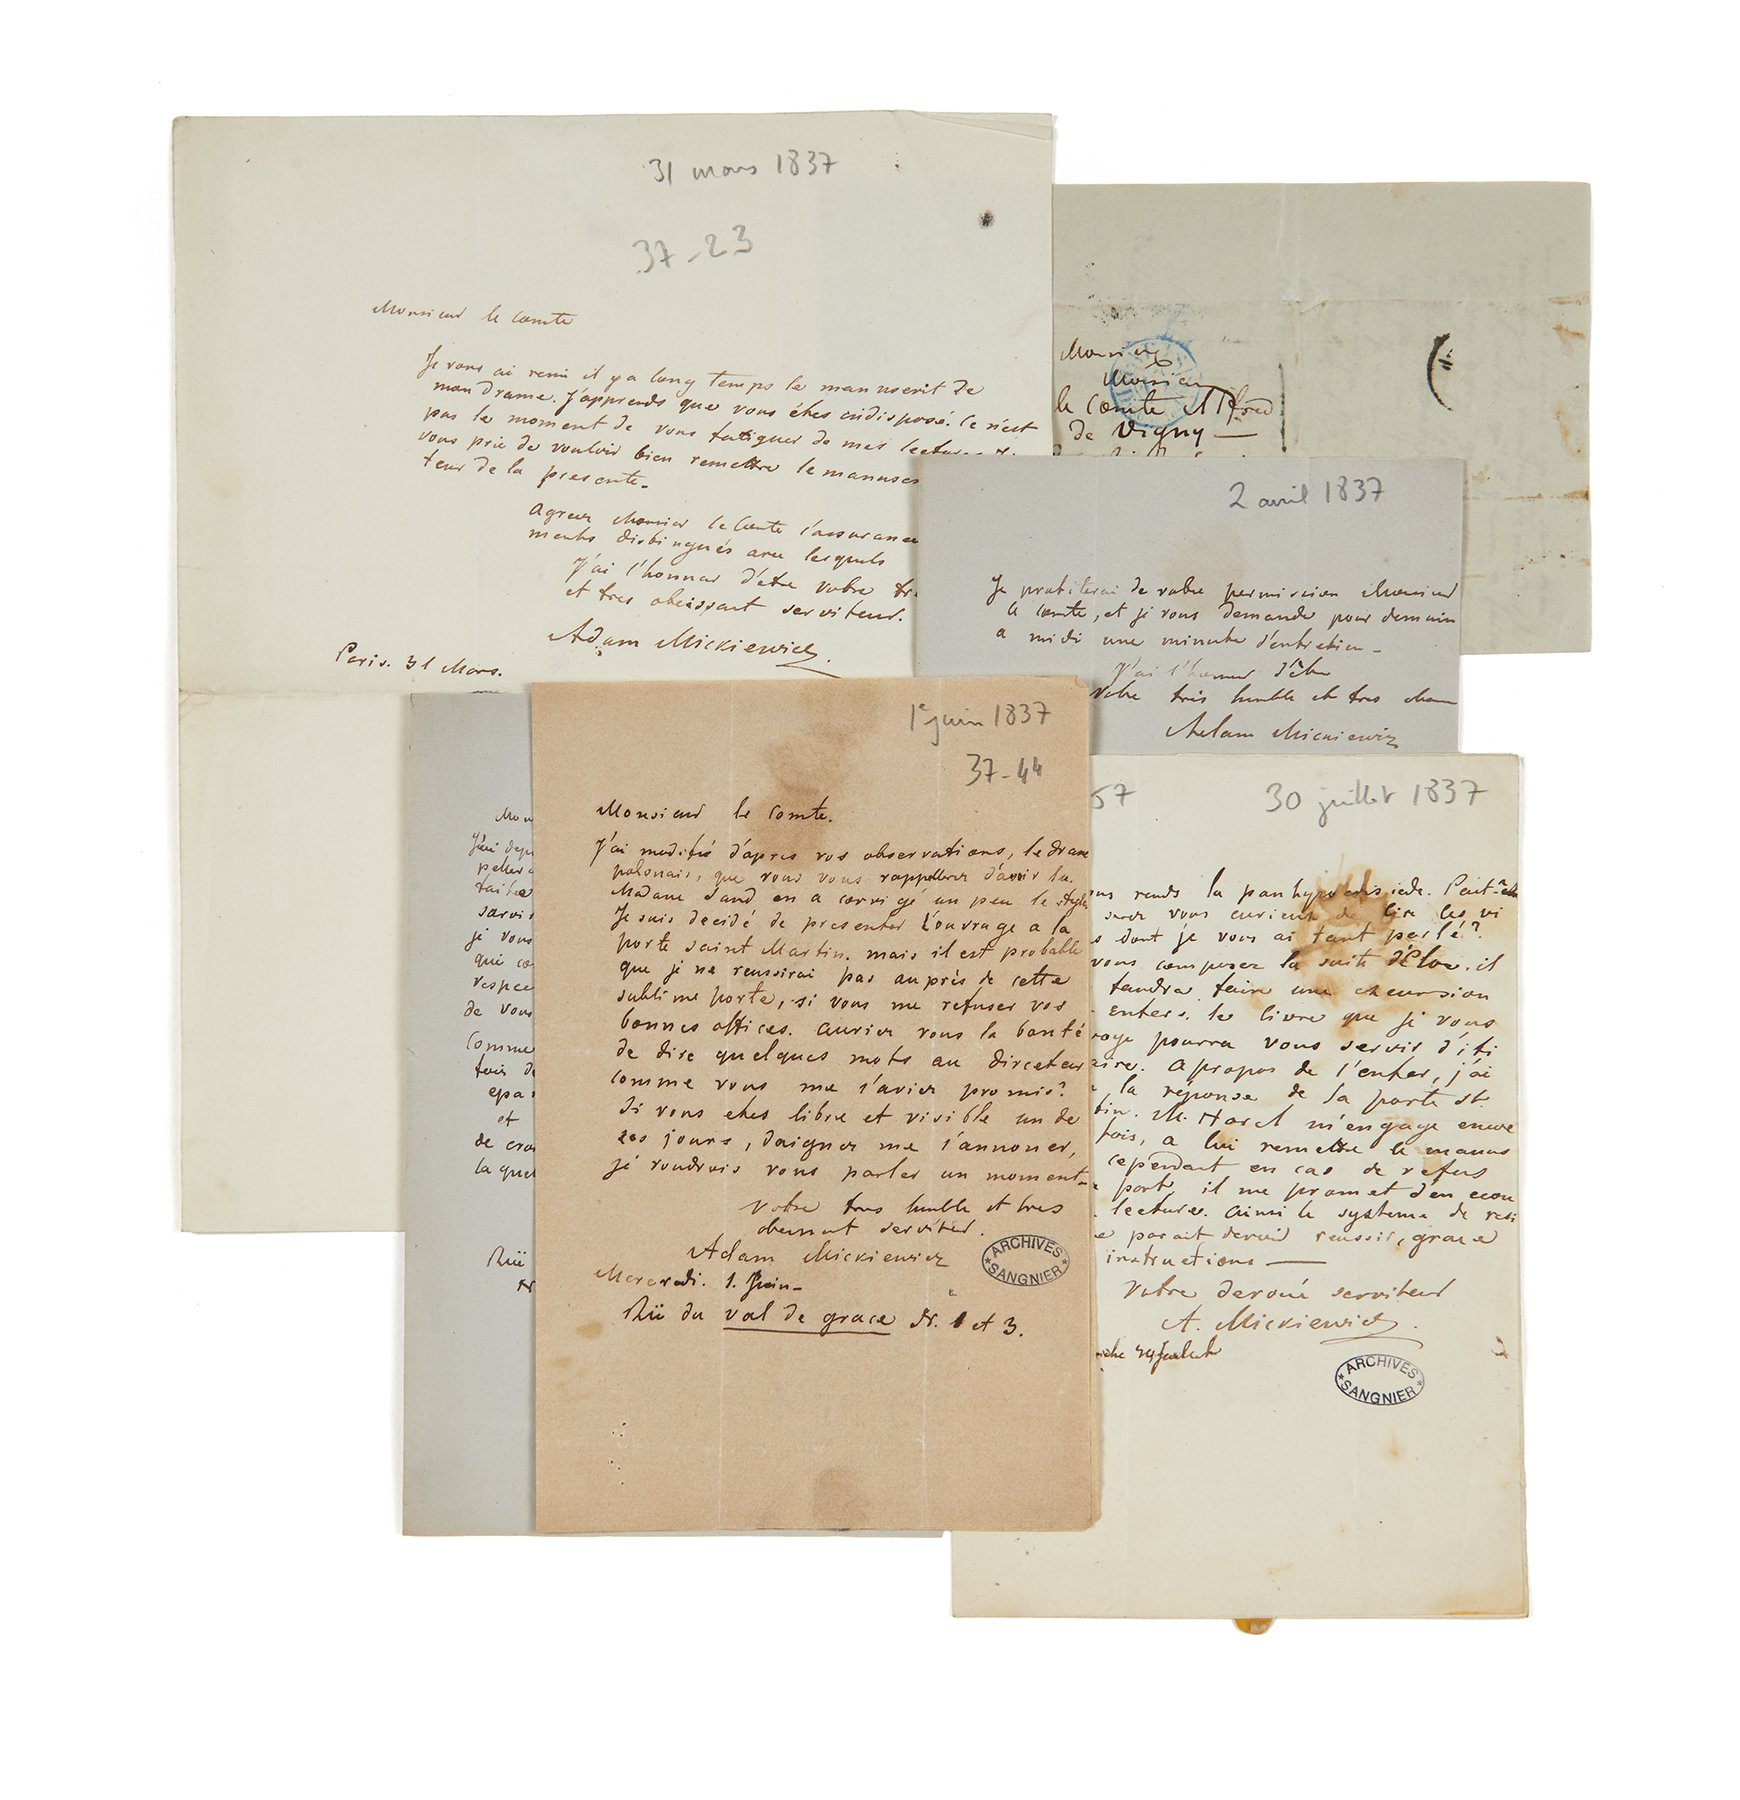 31 mars 1837
37-23
Monsieur le Comte
Je vous ai remi il y a long temps le manuscrit de
mon drame. J'apprends que vous êtes indisposé. Ce n'est
pas le moment de vous fatiguer de mes lectures
vous prie de vouloir bien remettre le manusc
teur de la presente.
Agreez Monsieur le Comte l'assurance
ments distingués avec lesquels
J'ai l'honneur d'etre votre tr
et tres obeissant serviteur.
Adam Mickiewicz.
Paris. 31 Mars.
Monsieur
Monsieur
le Comte Alfred
de Vigny —
2 avril 1837
Je profiterai de votre permission Monsieur
le comte, et je vous demande pour demain
a midi une minute d'entretien -
J'ai l'honneur d'être
Votre très humble et tres
Adam Mickiewicz
Mon
J'ai
servir
je vous
qui
respec
de vous
Comme
fois de
et
de
laquel
Rüe
N
1er juin 1837
37-44
Monsieur le Comte.
J'ai modifié d'apres vos observations, le drame
polonais, que vous vous rappellerez d'avoir lu.
Madame Sand en a corrigé un peu le style.
Je suis decidé de presenter l'ouvrage a la
porte saint Martin. mais il est probable
que je ne reussirai pas auprès de cette
sublime porte, si vous me refusez vos
bonnes offices. auriez vous la bonté
de dire quelques mots au directeur
comme vous me l'aviez promis?
Si vous etes libre et visible un de
ces jours, daignez me l'annoncer,
je voudrais vous parler un moment -
Votre tres humble et tres
obeissant serviteur.
Adam Mickiewicz
Mercredi. 1. Juin -
Rüe du val de grace N. 1 et 3.
ARCHIVES
SANGNIER
57
30 juillet 1837
ous rends la panhypocrisiade. Peut-etre
serez vous curieux de lire les vi
s dont je vous ai tant parlé?
vous composez la suite d'Eloa. il
faudra faire une excursion
enfers. le livre que je vous
voye pourra vous servir d'iti
aire. a propos de l'enfer, j'ai
la réponse de la porte St.
tin. M. Harel m'engage encore
fois, a lui remettre le manus
cependant en cas de refus
part, il me promet d'en ecou
lecture. ainsi le systeme de resi
e parait devoir reussir, grace
instructions —
Votre devoué serviteur
A. Mickiewicz.
ARCHIVES
SANGNIER